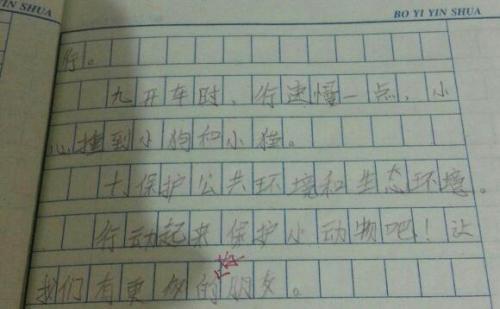 YIN SHUA
BO YI YIN SHUA
行。
九开车时,行速慢一点,小
心撞到小狗和小猫。
十保护公共环境和生态环境。
行动起来保护小动物吧!让
我们有更多的朋友。